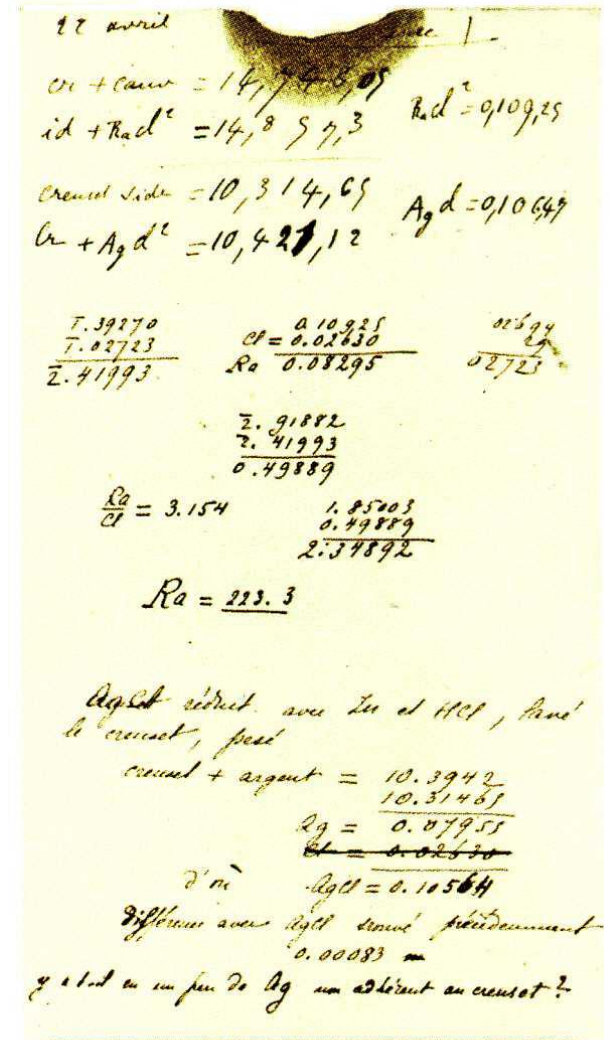 22 avril
cr + couv = 14,748,05
id + RaCl² = 14,857,3
RaCl² = 0,109,25
creuset vide = 10,314,65
AgCl = 0,10647
Cr + AgCl² = 10,421,12
1̅.39270
1̅.02723
2̅.41993
0.10925
Cl = 0.02630
Ra 0.08295
02694
29
02723
2̅.91882
2̅.41993
0.49889
Ra/Cl = 3.154
1.85003
0.49889
2.34892
Ra = 223.3
AgCl réduit avec Zn et HCl, lavé
le creuset, pesé
creuset + argent = 10.3942
10.31465
Ag = 0.07955
Cl = 0.02630
d'où AgCl = 0.10564
Différence avec AgCl trouvé précédemment
0.00083
y a t-il eu un peu de Ag non adhérent au creuset ?